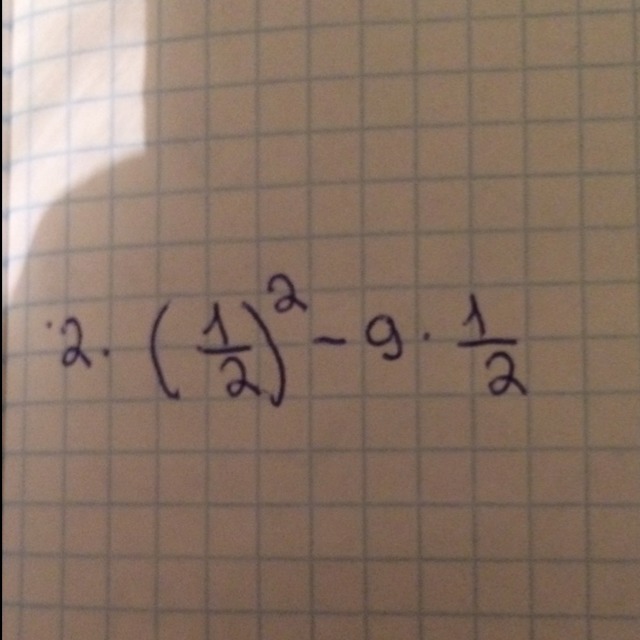 2. (1/2)² - 9 · 1/2